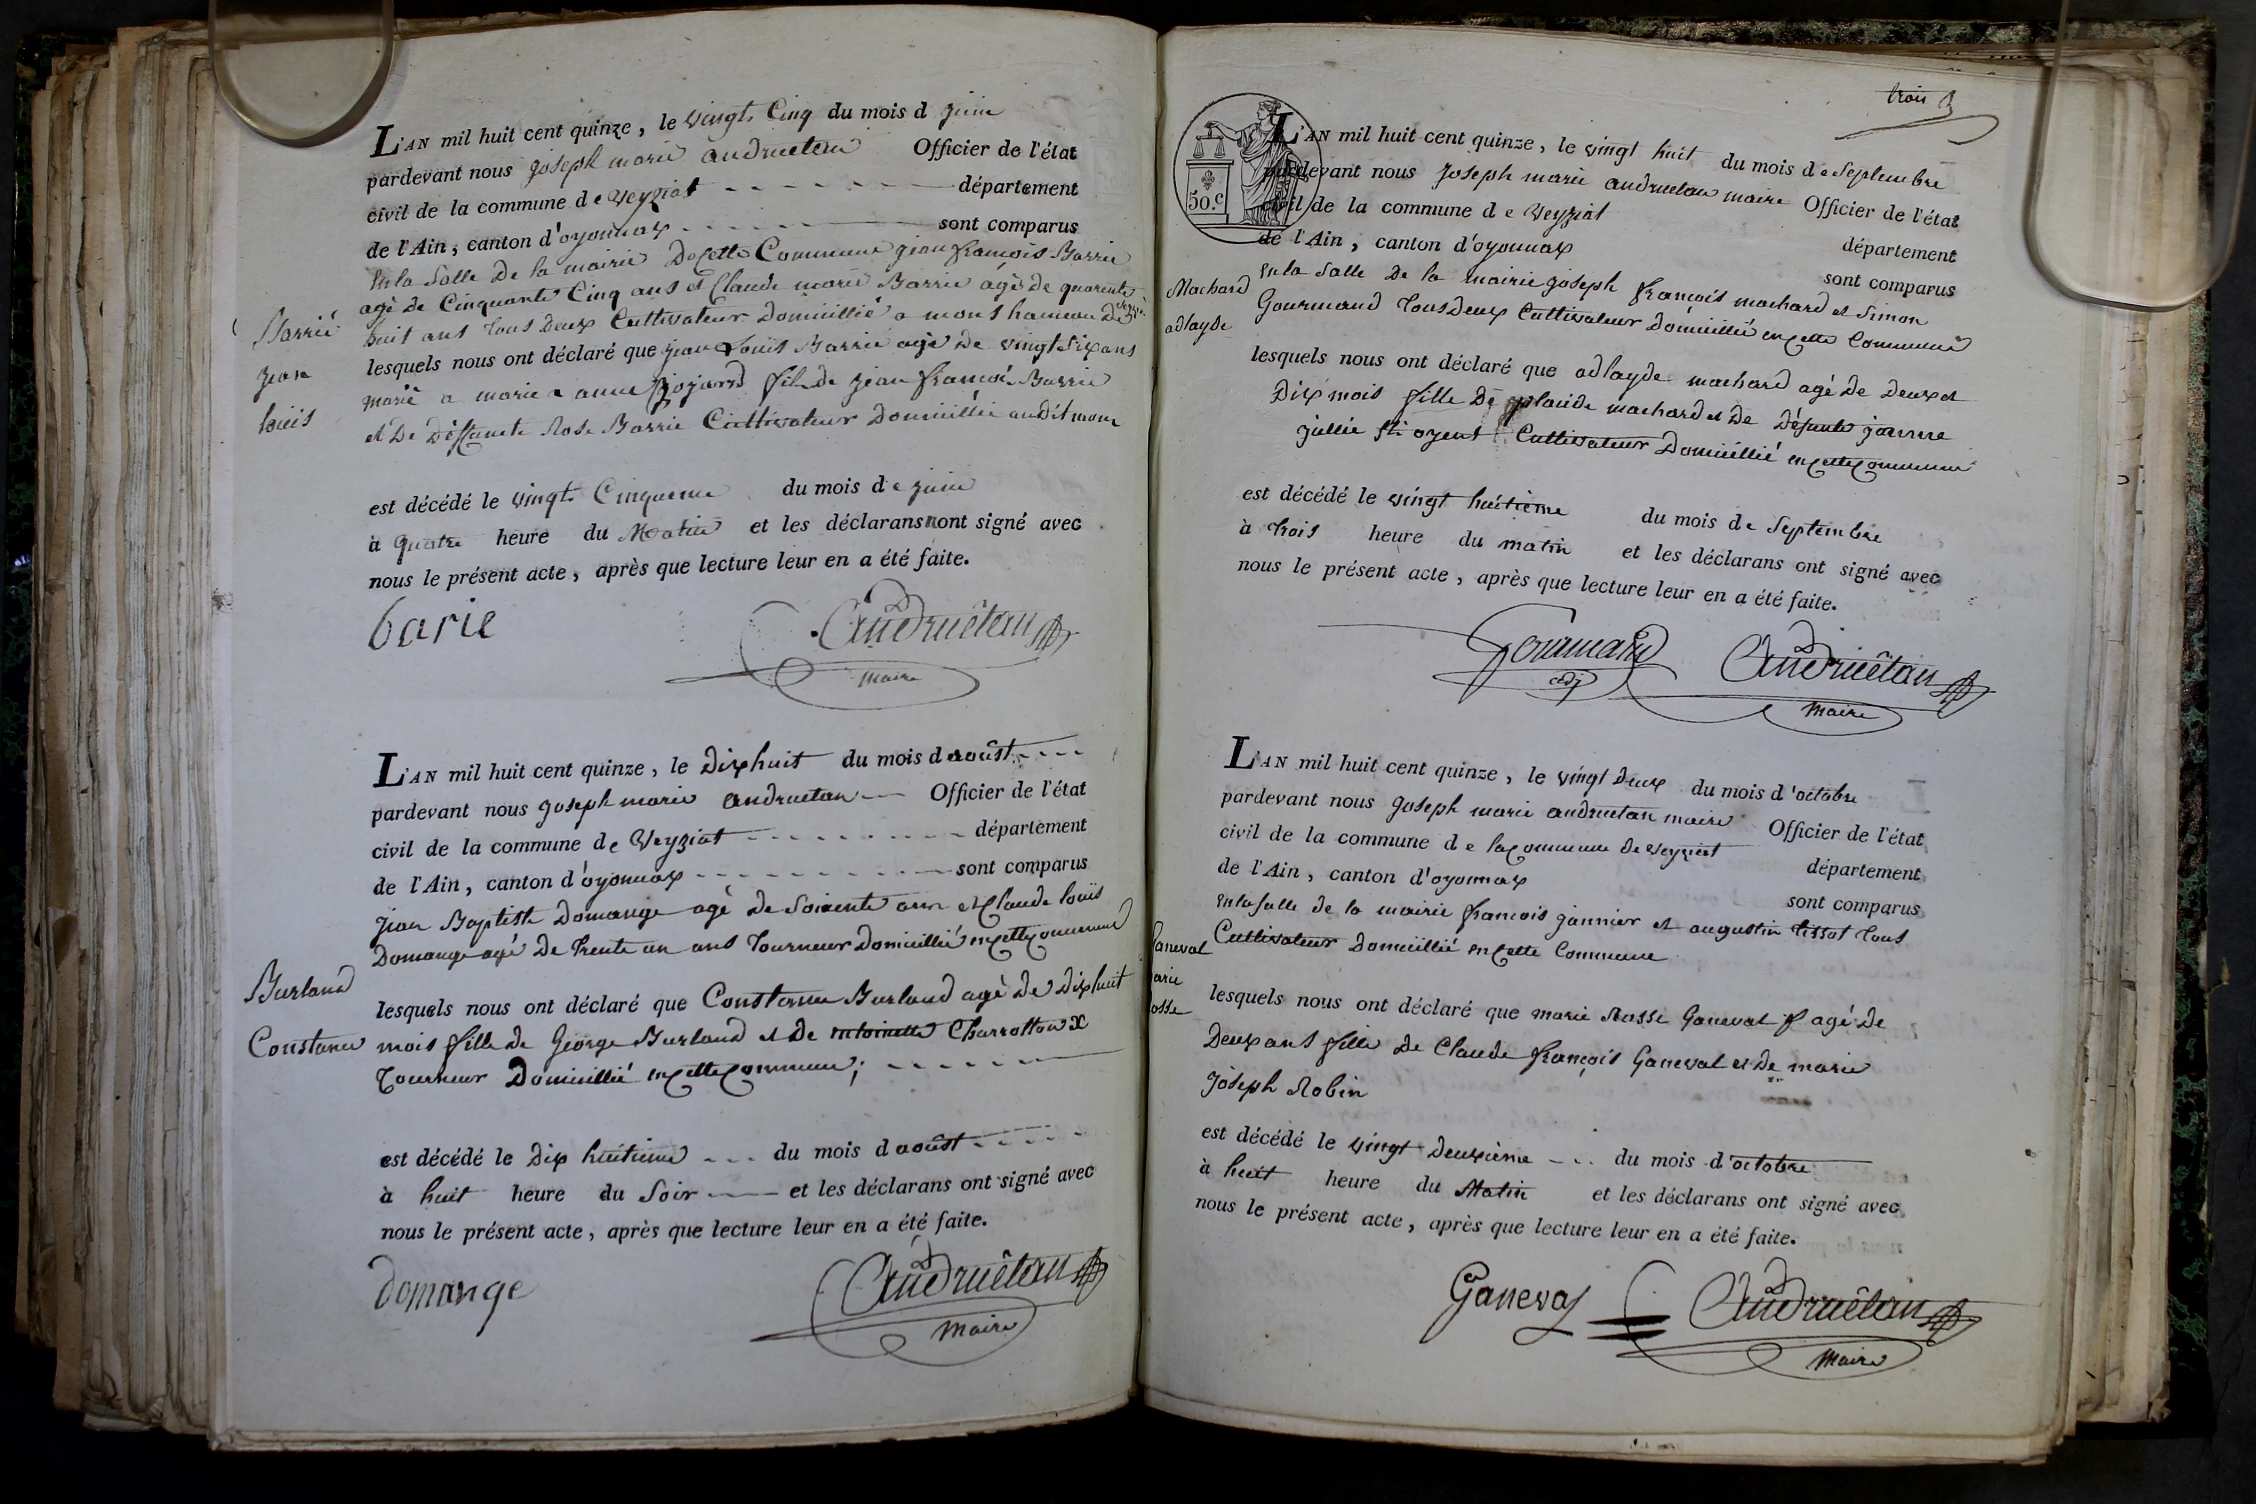 L'AN mil huit cent quinze, le vingt Cinq du mois d juin
pardevant nous joseph marie andruetan Officier de l'état
civil de la commune de veyziat département
de l'Ain, canton d'oyonnax sont comparus
En la Salle De la mairie De Cette Commune jean françois Barrie
agé de Cinquante Cinq ans et Claude marie Barrie agé de quarente
huit ans tous Deux Cultivateur Domicillié a mons hameau De
Barrié
lesquels nous ont déclaré que jean Louis Barrie agé De vingt Six ans
jean
marié a marie anne jojard fils de jean françois Barrie
louis
et De Deffuncte Rose Barrie Cultivateur Domicillié audit mons
est décédé le vingt Cinqueme du mois de juin
à quatre heure du Matin et les déclarans nont signé avec
nous le présent acte, après que lecture leur en a été faite.
barie Andruêtan
maire
L'AN mil huit cent quinze, le Dix huit du mois d aoûst
pardevant nous joseph marie andruetan Officier de l'état
civil de la commune de Veyziat département
de l'Ain, canton d'oyonnax sont comparus
jean Baptiste Domange agé de Soixente ans et Claude louis
Domange agé De trente un ans tourneur Domicillié en cette commune
Burland
lesquels nous ont déclaré que Constance Burland agé De Dix huit
Constance
mois fille de George Burland et de antoinette Charrotton
tourneur Domicillié en cette commune;
est décédé le Dix huitieme du mois d aoûst
à huit heure du Soir et les déclarans ont signé avec
nous le présent acte, après que lecture leur en a été faite.
domange Andruêtan
Maire
trois
50.c
L'AN mil huit cent quinze, le vingt huit du mois de Septembre
pardevant nous Joseph marie andruetan maire Officier de l'état
civil de la commune de Veyziat département
de l'Ain, canton d'oyonnax sont comparus
En la Salle De la mairie joseph françois machard et Simon
Machard
Gourmand tous Deux Cultivateur Domicillié en cette Commune
adlayde
lesquels nous ont déclaré que adlayde machard agé De Deux et
Dix mois fille De placide machard et De Défunte jeanne
jullie St oyent Cultivateur Domicillié en cette Commune
est décédé le vingt huitieme du mois de Septembre
à trois heure du matin et les déclarans ont signé avec
nous le présent acte, après que lecture leur en a été faite.
Gourmand Andruêtan
adj Maire
L'AN mil huit cent quinze, le vingt Deux du mois d'octobre
pardevant nous joseph marie andruetan maire Officier de l'état
civil de la commune de la Commune de veyziat département
de l'Ain, canton d'oyonnax sont comparus
En la Salle de la mairie françois jannier et augustin tissot tous
Cultivateur Domicillié en cette Commune
Ganeval
marie
Rosse
lesquels nous ont déclaré que marie Rosse Ganeval agé De
Deux ans fille De Claude françois Ganeval et De marie
joseph Robin
est décédé le vingt Deuxieme du mois d'octobre
à huit heure du Matin et les déclarans ont signé avec
nous le présent acte, après que lecture leur en a été faite.
Ganeval Andruêtan
Maire